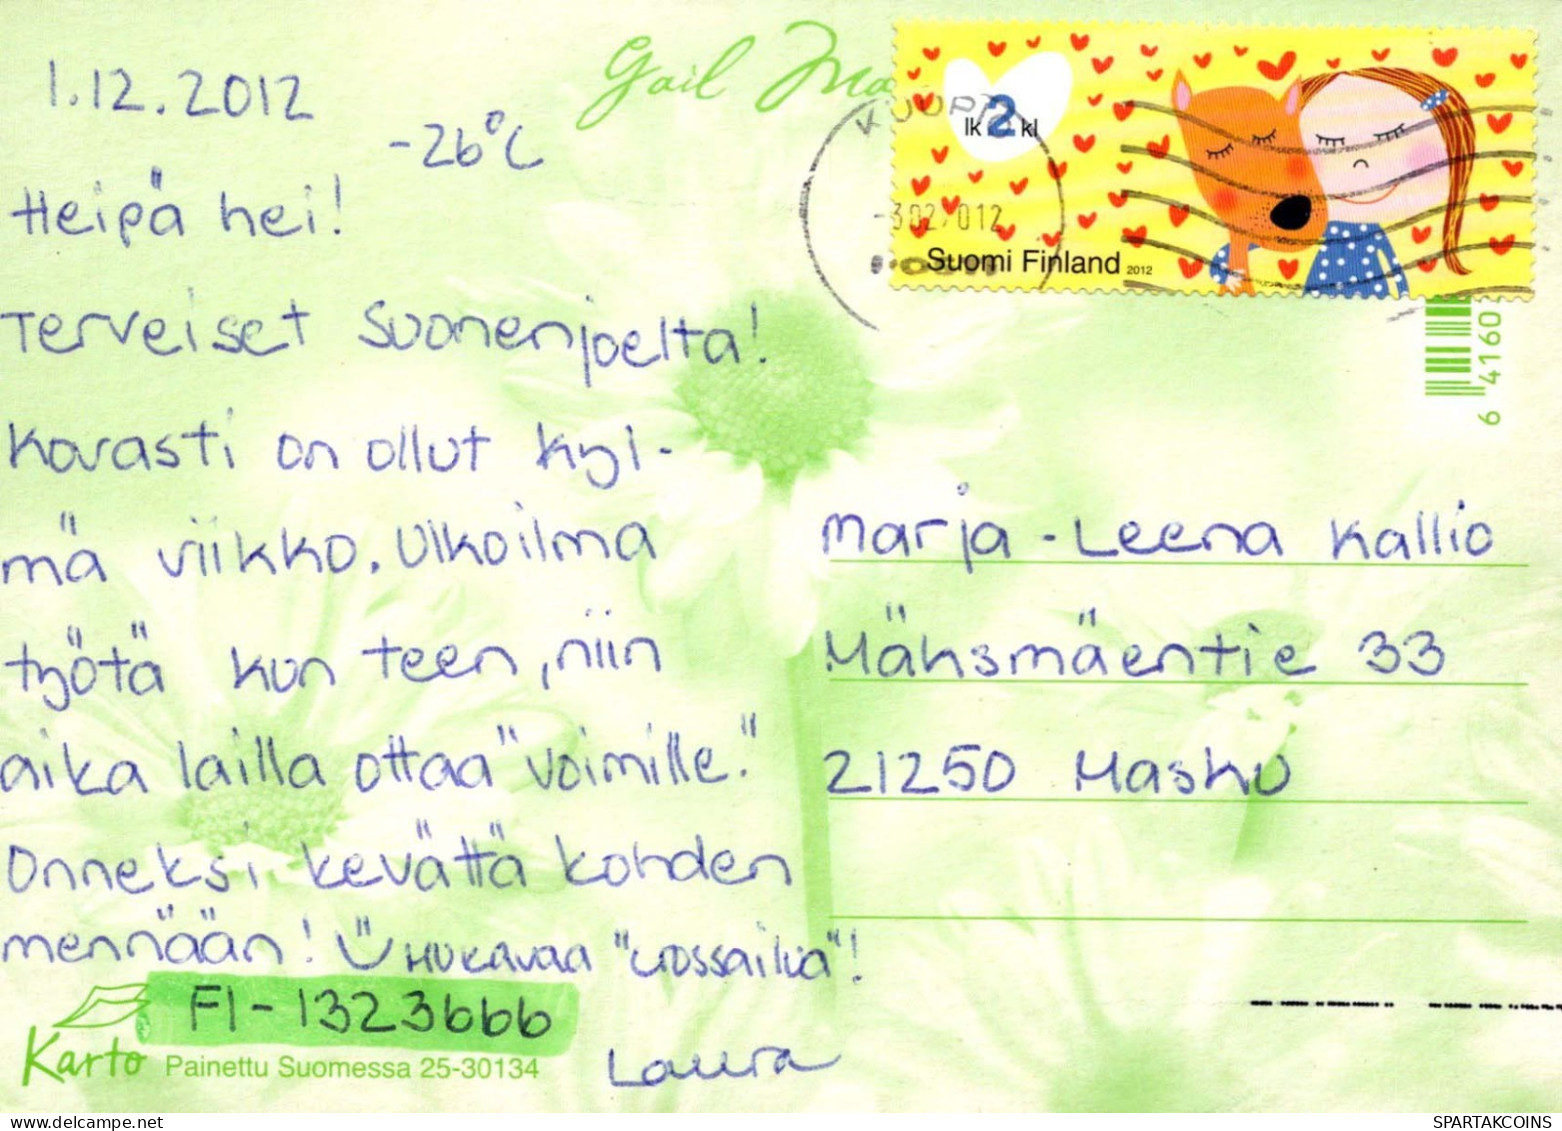 1.12.2012
-26°C
Heipä hei!
Terveiset Suonenjoelta!
Kovasti on ollut kyl-
mä viikko. Ulkoilma
työtä kun teen, niin
aika lailla ottaa "voimille."
Onneksi kevättä kohden
mennään! Mukavaa "crossailua"!
FI-1323666
Laura
Karto Painettu Suomessa 25-30134
Gail
KUOPIO
-302 2012
lk 2 kl
Suomi Finland 2012
6 4160
Marja-Leena Kallio
Mäksmäentie 33
21250 Masku
SPARTAKCOINS